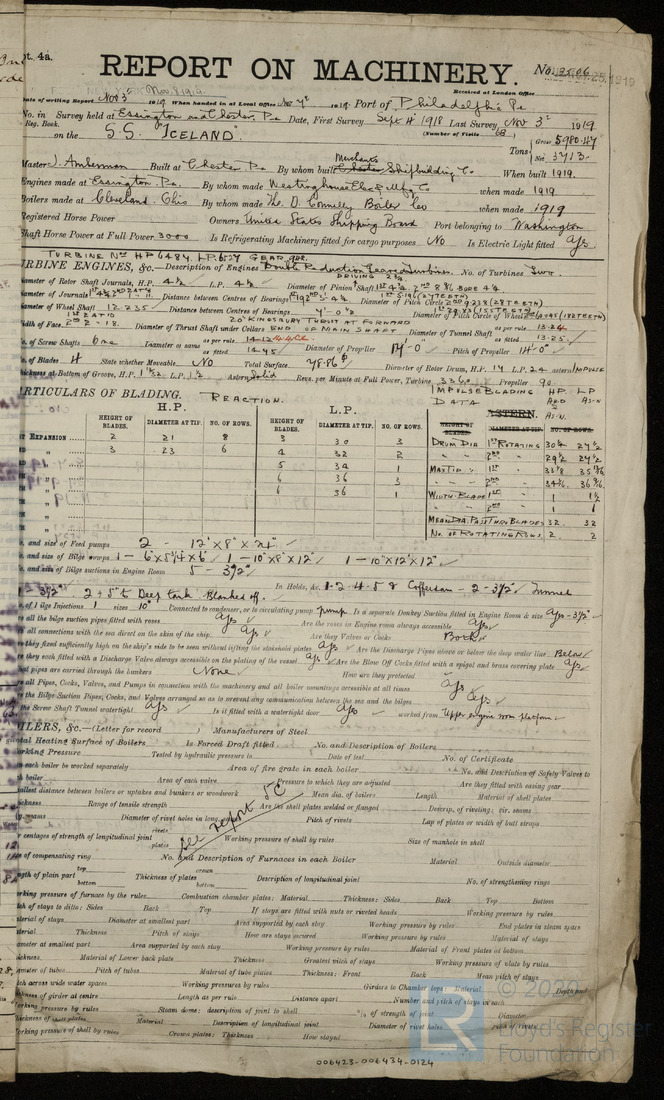 pt. 4a.
REPORT ON MACHINERY.
No. 2506
Received at London Office
Date of writing Report Nov 5 1919 When handed in at Local Office Nov 7th 1919 Port of Philadelphia Pa
No. in Survey held at Essington and Chester, Pa Date, First Survey Sept 4th 1918 Last Survey Nov 3rd 1919
Reg. Book. (Number of Visits 68)
on the S.S. "ICELAND".
Tons Gross 5980.47
Net 3713.
Master J. Amberman Built at Chester Pa By whom built Merchants Shipbuilding Co When built 1919.
Engines made at Essington. Pa. By whom made Westinghouse Elec & Mfg Co when made 1919.
Boilers made at Cleveland. Ohio By whom made The D. Connelly Boiler Co when made 1919
Registered Horse Power Owners United States Shipping Board Port belonging to Washington
Shaft Horse Power at Full Power 3000 Is Refrigerating Machinery fitted for cargo purposes No Is Electric Light fitted Yes
TURBINE ENGINES, &c.—Description of Engines Double Reduction Geared Turbines. No. of Turbines Two.
Diameter of Rotor Shaft Journals, H.P. 4½ L.P. 4½ Diameter of Pinion Shaft
Diameter of Journals Distance between Centres of Bearings Diameter of Pitch Circle
Diameter of Wheel Shaft 12.235 Distance between Centres of Bearings 4'-0½ Diameter of Pitch Circle of Wheel
Width of Face, Diameter of Thrust Shaft under Collars END OF MAIN SHAFT Diameter of Tunnel Shaft as per rule 13.24
as fitted 13.25
No. of Screw Shafts One Diameter of same as per rule as fitted 14.45 Diameter of Propeller 17'-0" Pitch of Propeller 14'-0"
No. of Blades 4 State whether Moveable No Total Surface 78.86 Diameter of Rotor Drum, H.P. 19 L.P. 24 Astern IMPULSE
Thickness at Bottom of Groove, H.P. L.P. 1½ Astern Solid Revs. per Minute at Full Power, Turbine 3360 Propeller 90
PARTICULARS OF BLADING. REACTION.
IMPULSE BLADING H.P. L.P.
DATA AHD AS'N
H.P. L.P. ASTERN.
HEIGHT OF BLADES. DIAMETER AT TIP. NO. OF ROWS. HEIGHT OF BLADES. DIAMETER AT TIP. NO. OF ROWS. HEIGHT OF BLADES. DIAMETER AT TIP. NO. OF ROWS.
EXPANSION 2 21 8 3 30 3 DRUM DIA 1ST ROTATING 30¼ 27½
3 23 6 4 32 2 2ND 29½ 27½
5 34 1 MAX TIP 1ST
6 36 3 2ND
6 36 1 WIDTH BLADE 1ST 1 1½
2ND 1
MEAN DIA. PASS THRU BLADES 32. 32
NO. OF ROTATING ROWS 2 2
No. and size of Feed pumps 2 - 12" x 8" x 24"
No. and size of Bilge pumps 1 - 6" x 5¾" x 6" 1 - 10" x 8" x 12" 1 - 10" x 12" x 12"
No. and size of Bilge suctions in Engine Room 5 - 3½"
In Holds, &c. 1-2-4-5 & Cofferdam - 2 - 3½" Tunnel
1 - 3½". 2 + 5" to Deep tank. Blanked off.
No. of Bilge Injections 1 sizes 10" Connected to condenser, or to circulating pump pump. Is a separate Donkey Suction fitted in Engine Room & size Yes - 3½"
Are all the bilge suction pipes fitted with roses Yes Are the roses in Engine room always accessible Yes
Are all connections with the sea direct on the skin of the ship Yes Are they Valves or Cocks Both
Are they fixed sufficiently high on the ship's side to be seen without lifting the stokehold plates Yes Are the Discharge Pipes above or below the deep water line Below
Are they each fitted with a Discharge Valve always accessible on the plating of the vessel Yes Are the Blow Off Cocks fitted with a spigot and brass covering plate Yes
What pipes are carried through the bunkers None How are they protected
Are all Pipes, Cocks, Valves, and Pumps in connection with the machinery and all boiler mountings accessible at all times Yes
Are the Bilge Suction Pipes, Cocks, and Valves arranged so as to prevent any communication between the sea and the bilges Yes
Is the Screw Shaft Tunnel watertight Yes Is it fitted with a watertight door Yes worked from Upper engine room platform
BOILERS, &c.—(Letter for record ) Manufacturers of Steel
Total Heating Surface of Boilers Is Forced Draft fitted No. and Description of Boilers
Working Pressure Tested by hydraulic pressure to Date of test No. of Certificate
Can each boiler be worked separately Area of fire grate in each boiler No. and Description of Safety Valves to
each boiler Area of each valve Pressure to which they are adjusted Are they fitted with easing gear
Smallest distance between boilers or uptakes and bunkers or woodwork Mean dia. of boilers Length Material of shell plates
Thickness Range of tensile strength Are the shell plates welded or flanged Descrip. of riveting: cir. seams
long. seams Diameter of rivet holes in long. seams Pitch of rivets Lap of plates or width of butt straps
See report 5C
Per centages of strength of longitudinal joint rivets plates Working pressure of shell by rules Size of manhole in shell
Size of compensating ring No. and Description of Furnaces in each Boiler Material Outside diameter
Length of plain part top bottom Thickness of plates crown bottom Description of longitudinal joint No. of strengthening rings
Working pressure of furnace by the rules Combustion chamber plates: Material Thickness: Sides Back Top Bottom
Pitch of stays to ditto: Sides Back Top If stays are fitted with nuts or riveted heads Working pressure by rules
Material of stays Diameter at smallest part Area supported by each stay Working pressure by rules End plates in steam space
Material Thickness Pitch of stays How are stays secured Working pressure by rules Material of stays
Diameter at smallest part Area supported by each stay Working pressure by rules Material of Front plates at bottom
Thickness Material of Lower back plate Thickness Greatest pitch of stays Working pressure of plate by rules
Diameter of tubes Pitch of tubes Material of tube plates Thickness: Front Back Mean pitch of stays
Pitch across wide water spaces Working pressures by rules Girders to Chamber tops: Material Depth and
thickness of girder at centre Length as per rule Distance apart Number and pitch of stays in each
Working pressure by rules Steam dome: description of joint to shell % of strength of joint Diameter
Thickness of shell plates Material Description of longitudinal joint Diameter of rivet holes Pitch of rivets
Working pressure of shell by rules Crown plates: Thickness How stayed
© 20
Lloyd's Register
Foundation
LR
006423-006434-0124